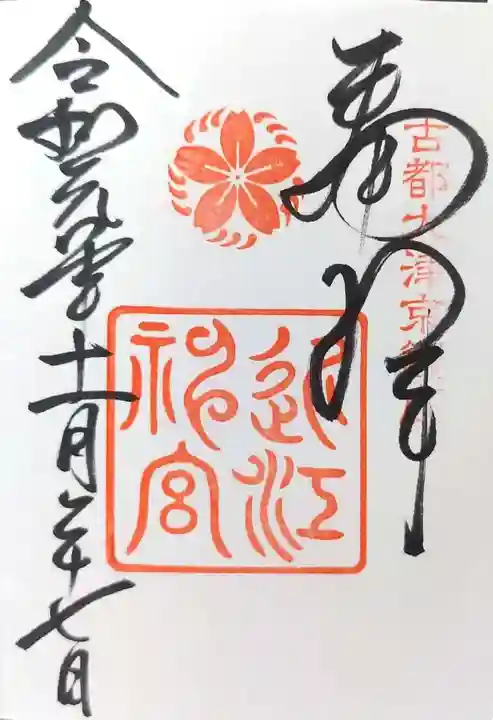 奉拝
古都大津京
近江
神宮
令和元年十一月二十七日